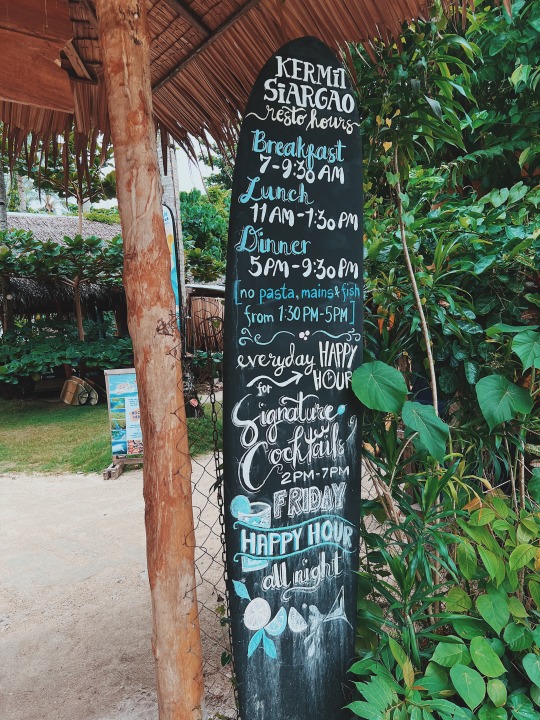 KERMIT
SIARGAO
resto hours
Breakfast
7-9:30 AM
Lunch
11AM-1:30PM
Dinner
5PM-9:30PM
[no pasta, mains & fish
from 1:30PM-5PM]
everyday HAPPY
for HOUR
Signature
Cocktails
2PM-7PM
FRIDAY
HAPPY HOUR
all night